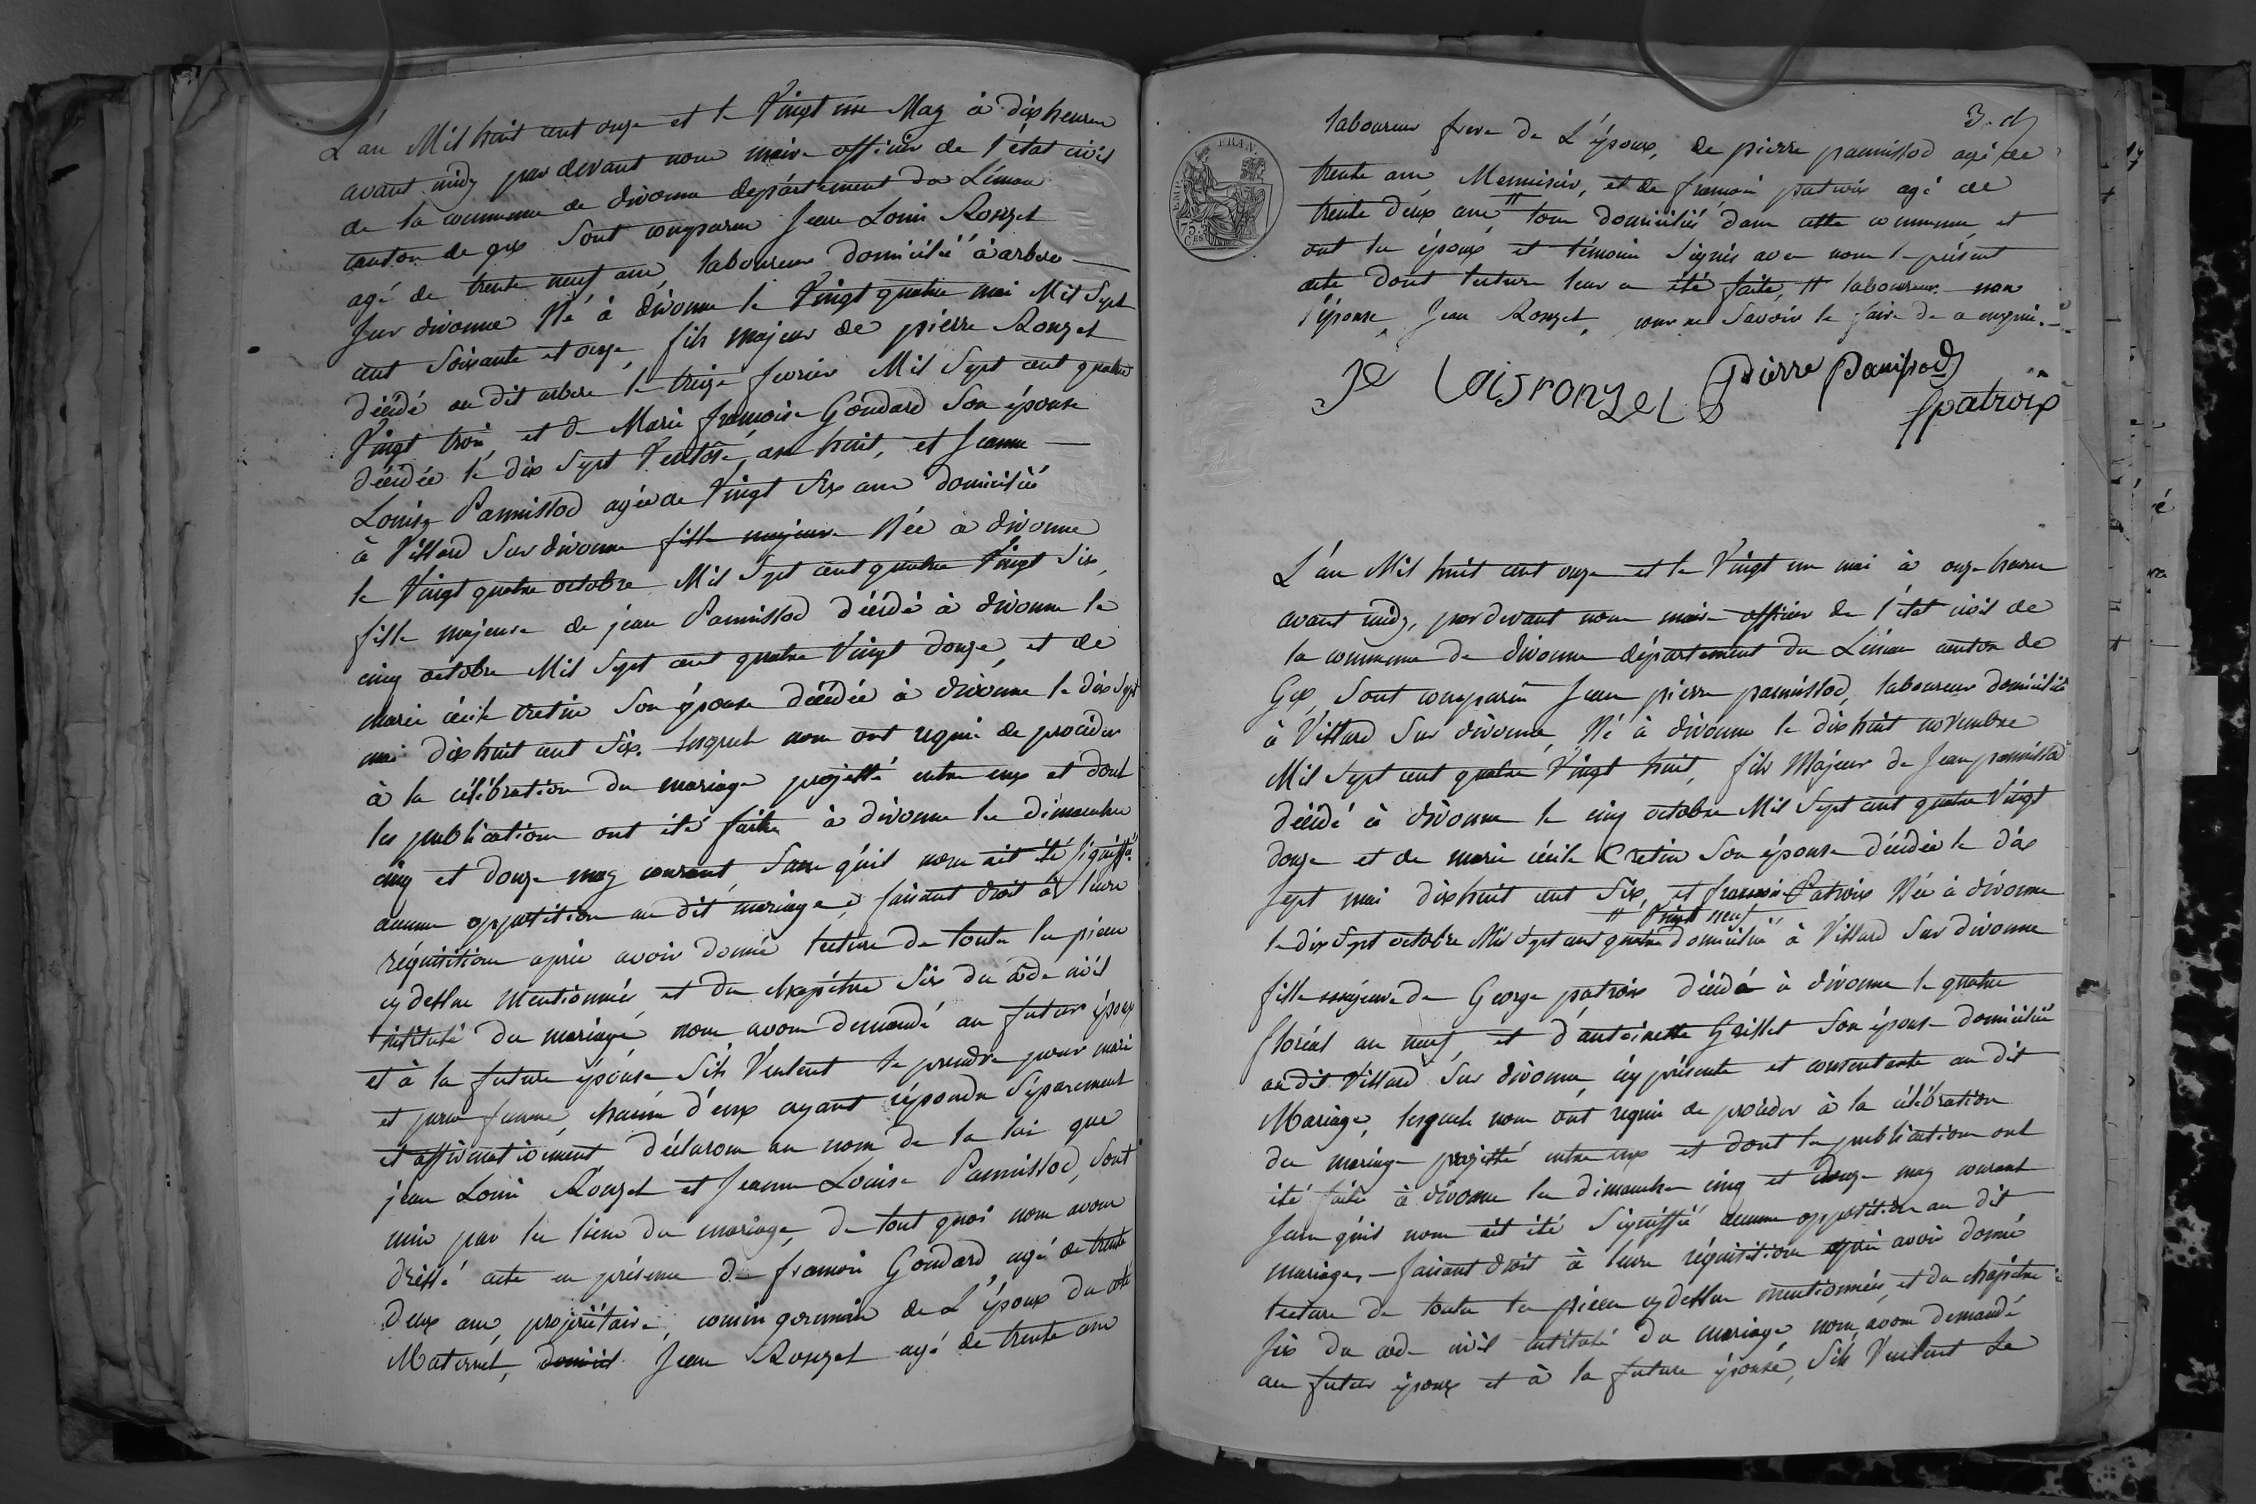 L'an Mil huit cent onze et le Vingt un May à dix heures
avant midy par devant nous maire officier de l'état civil
de la commune de divonne département du Léman
canton de gex sont comparus Jean Louis Rouzet
agé de trente neuf ans, laboureur domicilié à arbere
sur divonne Né à divonne le Vingt quatre mai Mil Sept
cent soixante et onze, fils majeur de pierre Rouzet
décédé au dit arbere le treize fevrier Mil Sept cent quatre
Vingt trois, et de Marie françoise Goudard son épouse
décédée le dix Sept Ventose, an huit, et Jeanne
Louise Pannissod agée de Vingt Six ans domiciliée
à Villard Sur divonne fille majeure Née à divonne
le Vingt quatre octobre Mil Sept cent quatre Vingt Six,
fille majeure de jean Pannissod décédé à divonne le
cinq octobre Mil Sept cent quatre Vingt douze, et de
marie cécile Cretin Son épouse décédée à divonne le dix Sept
mai dix huit cent Six. lesquels nous ont requis de procéder
à la célébration du mariage projetté entre eux et dont
les publications ont été faites à divonne les dimanches
cinq et douze may courant Sans qu'il nous ait été signiffié
aucune oppotition au dit mariage, faisant droit à leurs
réquisitions après avoir donné lecture de toutes les pieces
cy dessus Mentionnées et du chapitre Six du code civil
intitulé du mariage nous avons demandé au futur époux
et à la future épouse S'ils Veulent Se prendre pour mari
et pour femme, chacun d'eux ayant répondu Séparement
et affirmativement déclarons au nom de la loi que
jean Louis Rouzet et Jeanne Louise Pannissod, Sont
unis par les liens du mariage, de tout quoi nous avons
dréssé acte en présence de françois Goudard agé de trente
deux ans, propriétaire, cousin germain de L'époux du coté
Maternel, domicil Jean Rouzet agé de trente ans
3. d
laboureur frere de L'époux, de pierre pannissod agé de
trente ans Menuisier, et de françois patroix agé de
trente deux ans # tous domiciliés dans cette commune, et
ont les époux et témoins Signés avec nous le présent
acte dont lecture leur a été faite, # laboureur. non
l'épouse, Jean Rouzet, pour ne Savoir le faire de a enquis.
Je Lois ronzet Pierre Panissod
fpatroix
FRAN.
75.
L'an Mil huit cent onze et le Vingt un mai à onze heures
avant midy, par devant nous maire officier de l'état civil de
la commune de divonne département du Léman canton de
Gex, Sont comparus Jean pierre pannissod, laboureur domicilié
à Villard Sur divonne, Né à divonne le dix huit novembre
Mil Sept cent quatre Vingt huit, fils Majeur de Jean pannissod
décédé à divonne le cinq octobre Mil Sept cent quatre Vingt
douze et de marie cécile Cretin Son épouse décédée le dix
sept mai dix huit cent Six, et françoise Patroix Née à divonne
# Vingt neuf
le dix Sept octobre Mil Sept cent quatre domiciliée à Villard Sur divonne
fille majeure de George patroix décédé à divonne le quatre
floréal an neuf et d'antoinette Grillet Son épouse domiciliée
au dit Villard Sur divonne, cy présente et consentante au dit
Mariage, lesquels nous ont requis de procéder à la célébration
du mariage projetté entre eux et dont les publications ont
été faites à divonne les dimanches cinq et douze may courant
Sans qu'il nous ait été Signiffié aucune oppotition au dit
mariage, faisant droit à leurs réquisitions après avoir donné
lecture de toutes les pièces cy dessus mentionnées, et du chapitre
Six du code civil intitulé du mariage nous avons demandé
au futur époux et à la future épouse, S'ils Veulent Se